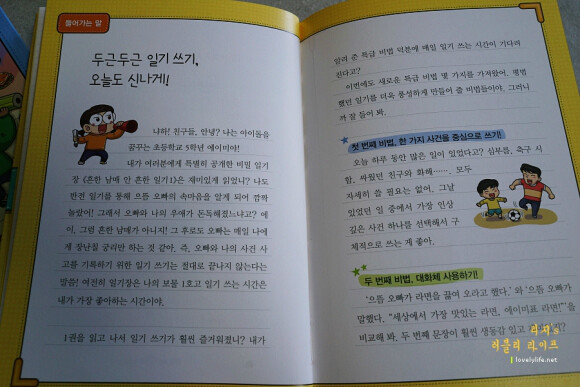 들어가는 말
두근두근 일기 쓰기,
오늘도 신나게!
나하! 친구들, 안녕? 나는 아이돌을
꿈꾸는 초등학교 5학년 에이미야!
내가 여러분에게 특별히 공개한 비밀 일기
장 《흔한 남매 안 흔한 일기 1》은 재미있게 읽었니? 나도
반전 일기를 통해 으뜸 오빠의 속마음을 알게 되어 깜짝
놀랐어! 그래서 오빠와 나의 우애가 돈독해졌느냐고? 에
이, 그럼 흔한 남매가 아니지! 그 후로도 오빠는 매일 나에
게 장난칠 궁리만 하는 것 같아. 즉, 오빠와 나의 사건 사
고를 기록하기 위한 일기 쓰기는 절대로 끝나지 않는다는
말씀! 여전히 일기장은 나의 보물 1호고 일기 쓰는 시간은
내가 가장 좋아하는 시간이야.
1권을 읽고 나서 일기 쓰기가 훨씬 즐거워졌니? 내가
알려 준 특급 비법 덕분에 매일 일기 쓰는 시간이 기다려
진다고?
이번에도 새로운 특급 비법 몇 가지를 가져왔어. 평범
했던 일기를 더욱 풍성하게 만들어 줄 비법들이야. 그러니
까 잘 들어 봐.
첫 번째 비법, 한 가지 사건을 중심으로 쓰기!
오늘 하루 동안 많은 일이 있었다고? 심부름, 축구 시
합, 싸웠던 친구와 화해……. 모두
자세히 쓸 필요는 없어. 그날
있었던 일 중에서 가장 인상
깊은 사건 하나를 선택해서 구
체적으로 쓰는 게 좋아.
두 번째 비법, 대화체 사용하기!
'으뜸 오빠가 라면을 끓여 오라고 했다.'와 '으뜸 오빠가
말했다. "세상에서 가장 맛있는 라면, 에이미표 라면!"'을
비교해 봐. 두 번째 문장이 훨씬 생동감 있고
러블리 라이프
lovelylife.net